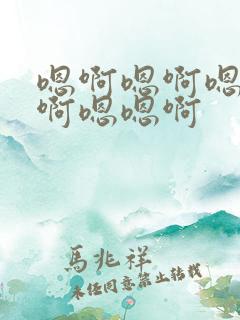 嗯啊嗯啊嗯
啊嗯嗯啊
馬兆祥
未经同意禁止转载